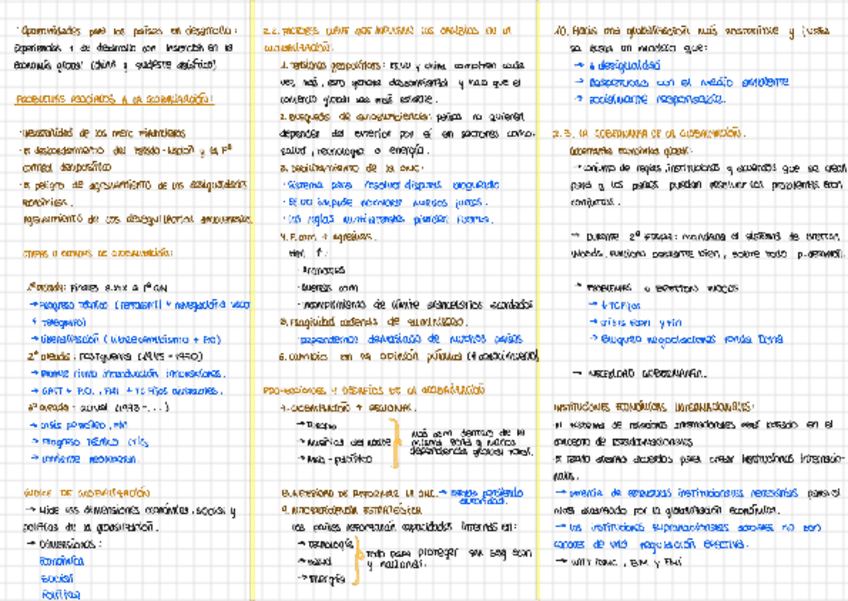 · Oportunidades para los países en desarrollo:
Experiencias + de desarrollo con inserción en la
economía global (China y sudeste asiático)
PROBLEMAS ASOCIADOS A LA GLOBALIZACIÓN:
· Inestabilidad de los merc. financieros
· El desbordamiento del Estado-Nación y la
control democrático
· El peligro de agravamiento de las desigualdades
económicas.
Agravamiento de los desequilibrios ambientales.
ETAPAS U OLEADAS DE GLOBALIZACIÓN:
1ª oleada: Finales S.XIX a 1ª GM
→ Progreso técnico (ferrocarril + navegación a vapor
+ telégrafo)
→ Liberalización
2ª oleada: Postguerra (1945 - 1970)
→ ritmo introducción innovaciones.
→ GATT + FMI +
3ª oleada: actual (1973 - ...)
→ crisis petróleo
→ Progreso técnico (TICs)
→ corriente neoliberal
ÍNDICE DE GLOBALIZACIÓN
→ Mide las dimensiones económica, social y
política de la globalización.
→ Dimensiones:
Económica
Social
Política
2.2. FACTORES CLAVE QUE IMPULSAN LOS CAMBIOS EN LA
GLOBALIZACIÓN:
1. Tensiones geopolíticas: EEUU y China compiten cada
vez más, esto genera desconfianza y hace que el
comercio global sea más estable.
2. Búsqueda de autosuficiencia: países no quieren
depender del exterior por sí en sectores como:
salud, tecnología o energía.
3. Debilitamiento de la OMC:
· Sistema para resolver disputas bloqueado
· EEUU impide nombrar nuevos jueces.
· Las reglas multilaterales pierden fuerza.
4. P. com. + agresivas.
· Aranceles
· Guerras com
· Incumplimiento de límite arancelarios acordados
5. Fragilidad cadenas de suministro.
· dependemos demasiado de muchos países
6. Cambios en la opinión pública
PROYECCIONES Y DESAFÍOS DE LA GLOBALIZACIÓN
7. GLOBALIZACIÓN + REGIONAL.
→ Europa
→ América del norte
→ Asia - pacífico
más com dentro de la
misma zona y menos
dependencia global total.
8. NECESIDAD DE REFORMAR LA OMC → perdiendo
autoridad.
9. INTERDEPENDENCIA ESTRATÉGICA
Los países reforzarán capacidades internas en:
→ Tecnología
→ Salud
→ Energía
todo para proteger su seg econ
y nacional.
10. Hacia una globalización más sostenible y justa
se busca un modelo que:
→ ↓ desigualdad
→ Respetuoso con el medio ambiente
→ socialmente responsable.
2.3. LA GOBERNANZA DE LA GLOBALIZACIÓN.
Gobernanza económica global:
→ conjunto de reglas, instituciones y acuerdos que se crean
para q los países puedan resolver los problemas econ
conjuntos.
→ Durante 2ª etapa: mandaba el sistema de Bretton
Woods. Funcionó bastante bien, sobre todo p. desarroll.
→ PROBLEMAS BRETTON WOODS
→ ↓ TC fijos
→ crisis econ y fin
→ Bloqueo negociaciones ronda Doha
→ NECESIDAD GOBERNANZA.
INSTITUCIONES ECONÓMICAS INTERNACIONALES:
El sistema de relaciones internacionales está basado en el
concepto de
El Estado alcanza acuerdos para crear instituciones internacio-
nales.
→ carencia de estructuras institucionales necesarias para el
nivel alcanzado por la globalización económica.
→ Las instituciones supranacionales actuales no son
capaces de una regulación efectiva.
→ OMC, BM y FMI